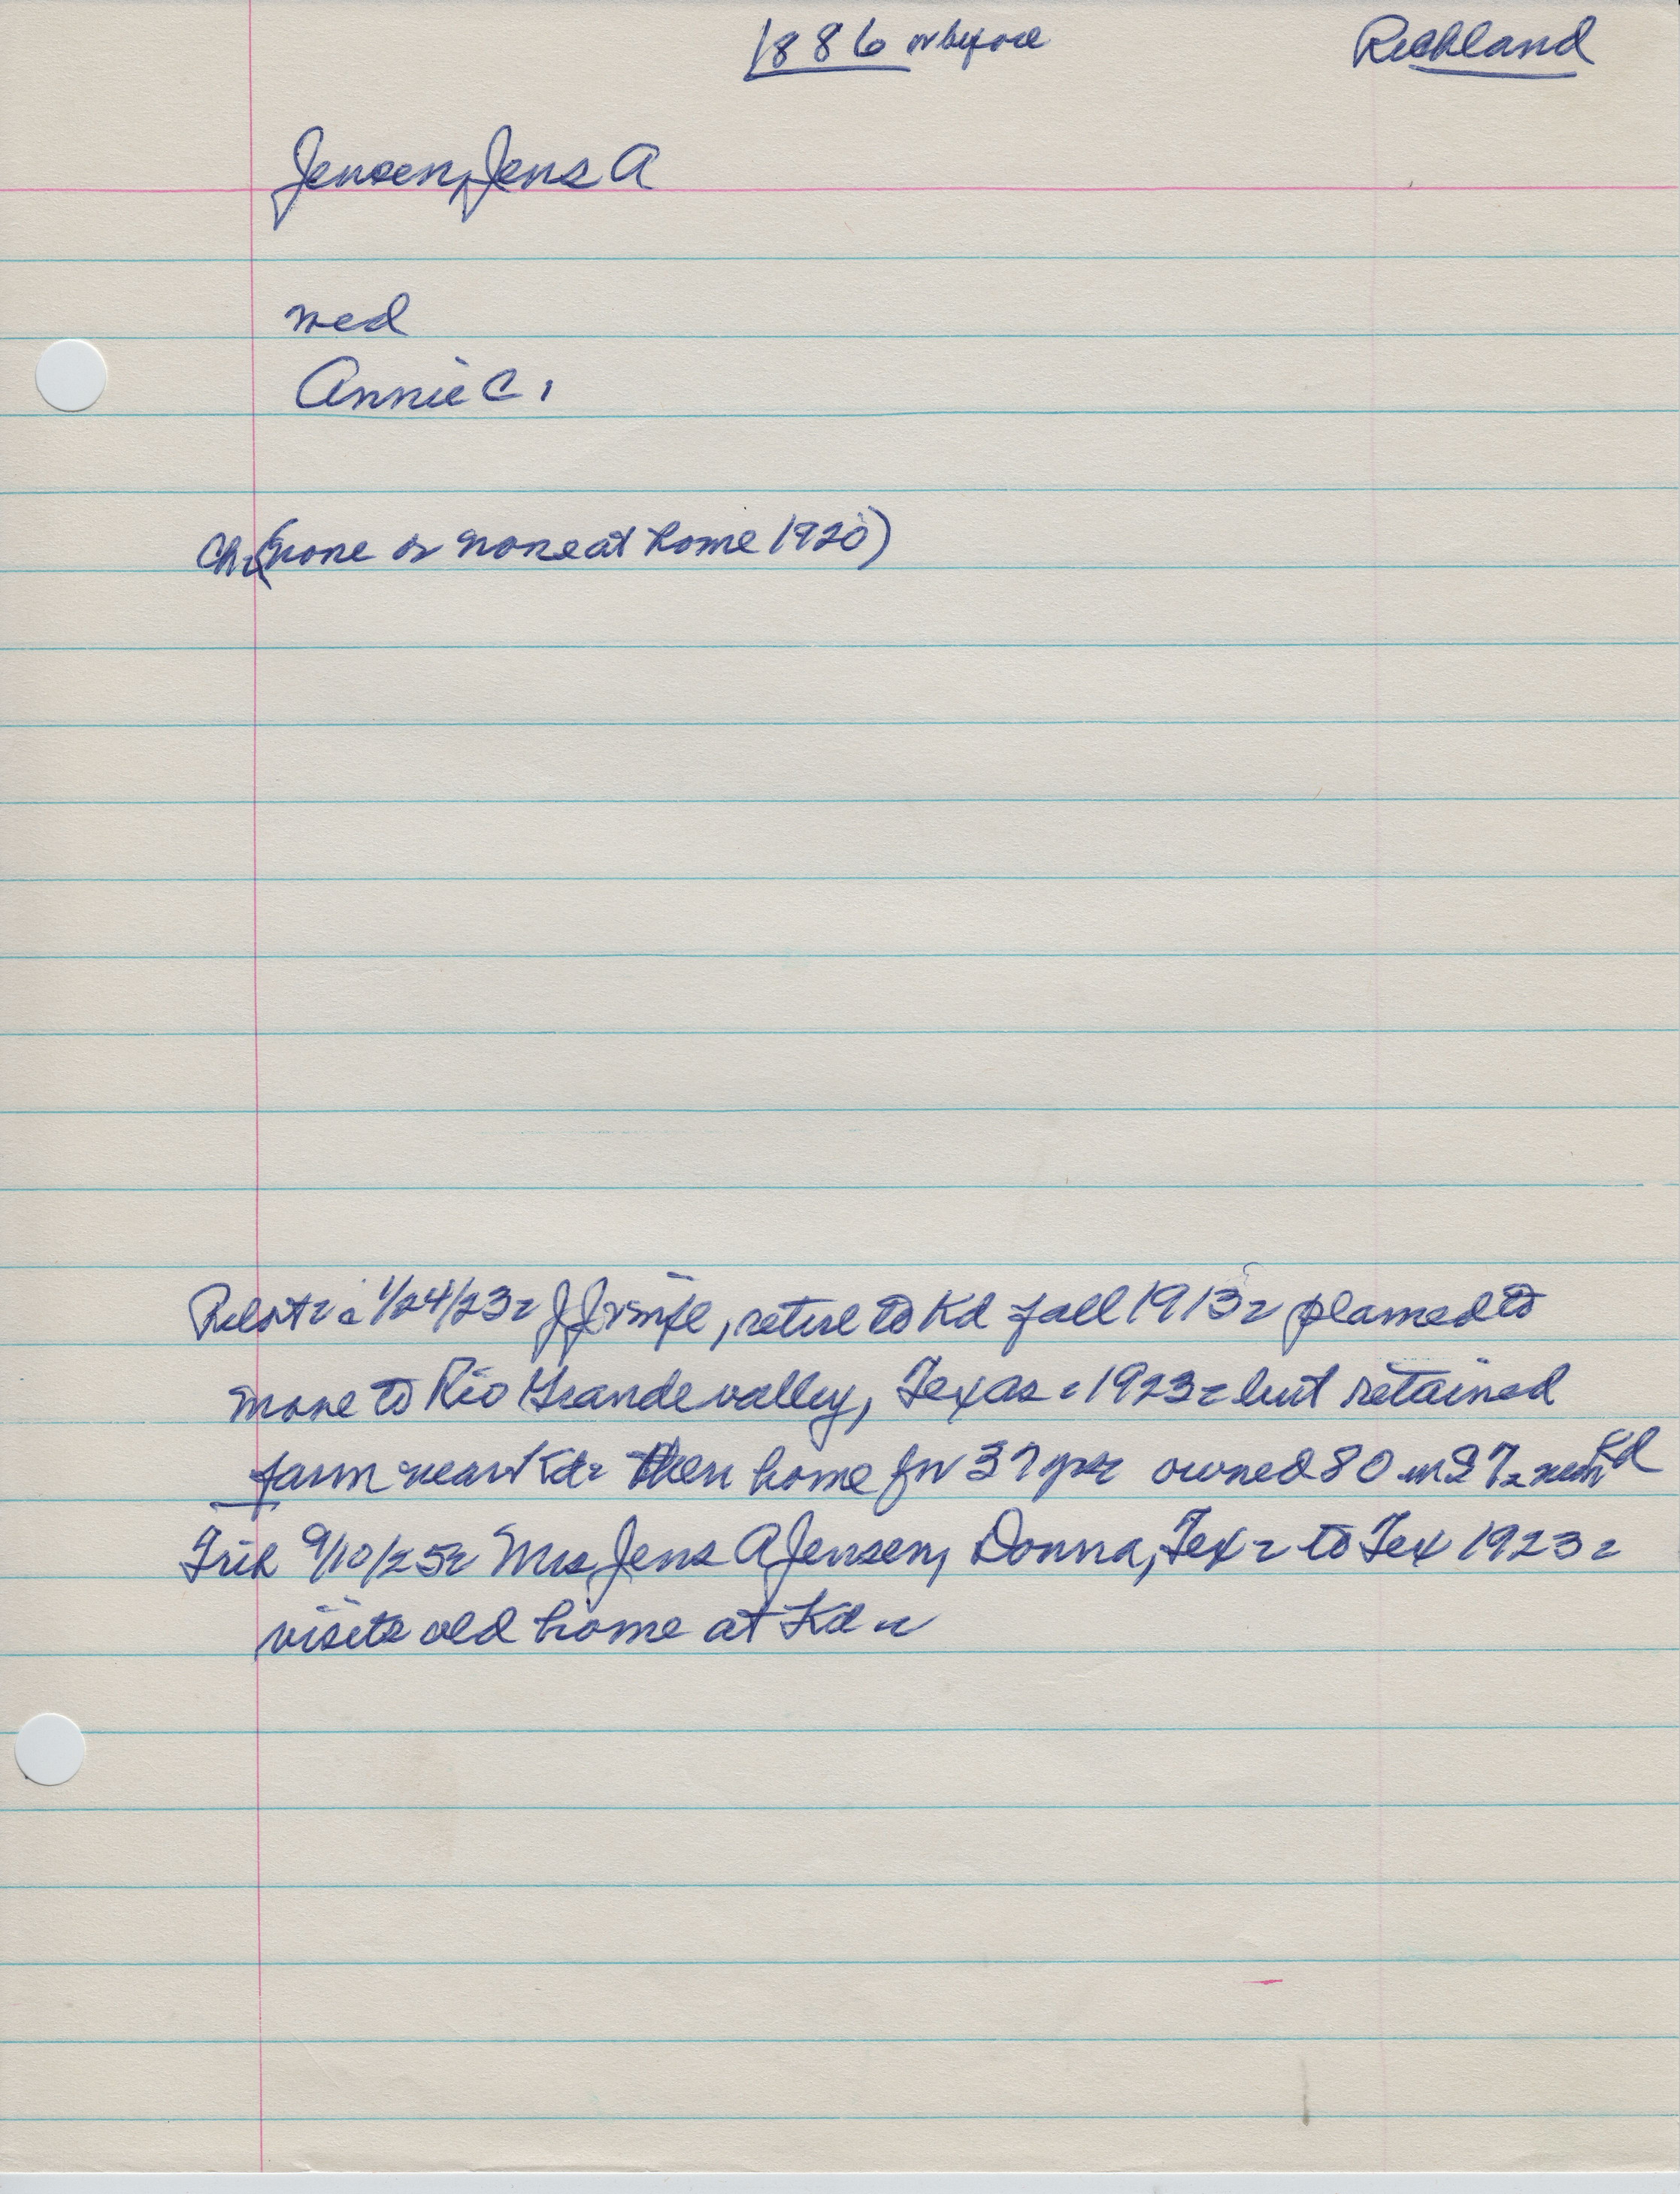 1886 or before Richland
Jensen, Jens A
med
Annie C.
Ch: (none or none at home 1920)
1/24/23 JJ & wife, retire to Kd fall 1913 planned to
move to Rio Grande valley, Texas 1923 but retained
farm near Kd then home for 37 yrs owned 80 in 27 near Kd
Trib 9/10/25 Mrs Jens A Jensen, Donna, Tex to Tex 1923
visits old home at Kd